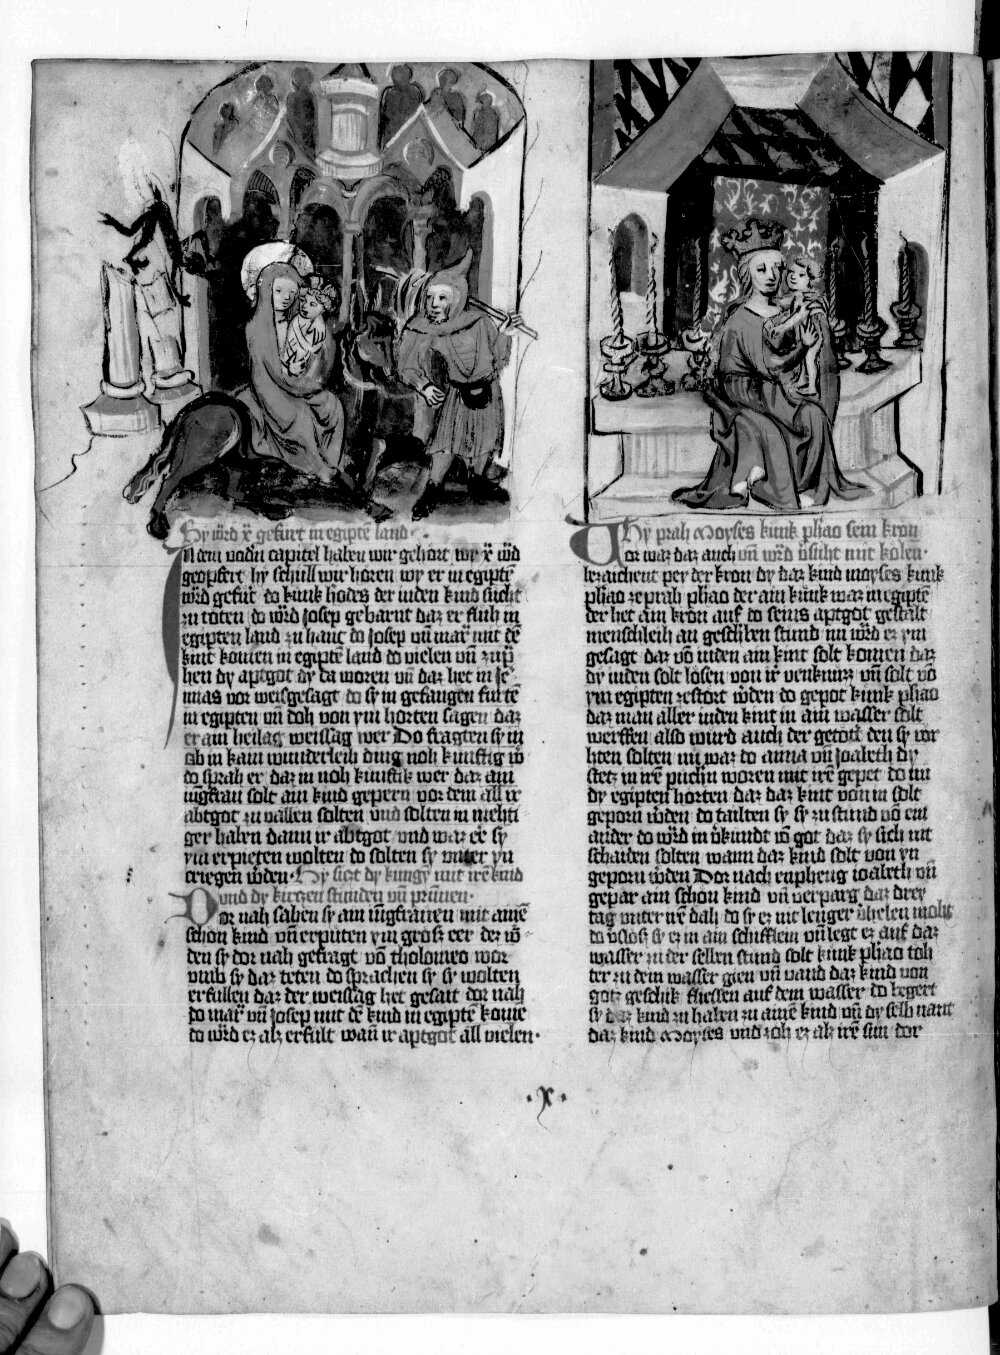 Hy wirt x̄ gefürt in egiptē land·
In dem vodn̄ capitel haben wir gehört wy x̄ wd
geopfert hy schüll wir horen wy er in egiptē
wird gefürt do künk herodes der iuden kind sücht
zu töten do wd̄ Josep gebarnt daz er fluh in
egipten land zu hant do Josep vn̄ mar̄ mit dē
kint komen in egiptē land do vielen vn̄
hen dy aptgot dy da woren vn̄ daz het in Je
mias vor weisgesagt do sy in gefangen furtē
in egipten vn̄ doh von ym horten sagen daz
er ain heilag weissag wer Do fragten sy in
ob in kain wunderleih ding noh künftig w̄
do sprah er daz in noh künftik wer daz ain
iūgfrau solt ain kind gepern vor dem all ir
abtgot zu vallen solten vnd solten in mehti
ger haben dann ir abtgot vnd waz er sy
ym erpieten wolten do solten sy vnter yn
criegen wden· Hy sict dy küngÿ mit irē kind
vnd dy kirczen stunden vn̄
Dor nah sahen sy ain iūgfrauen mit ainē
schön kind vn̄ erputen ym gros eer der w̄
den sy dor nah gefragt vō tholomeo wor
vmb sy daz teten do sprachen sy sy wolten
erfüllen daz der weissag het gesait dor nah
do mar̄ vn̄ Josep mit dē kind in egiptē kome
do wd̄ ez alz erfült wan̄ ir aptgot all vielen·
Hy prah Moyses künk phao sein kron
vor waz daz auch vn̄ wd̄ v̄sücht mit kolen·
bezaichent per der kron dy daz kind moyses künk
phao zeprah phao der ain künk waz in egiptē
der het ain kron auf do seins aptgot gestalt
menschleih an geschben stund nu wd̄ ez ym
gesagt daz vō iuden ain kint solt komen daz
dy iuden solt losen von ir venknuzz vn̄ solt vō
ym egipten zestort wden do gepot künk phao
daz man aller iuden kint in ain wasser solt
werffen also wurd auch der getött den sy vor
hten solten nu waz do anna vn̄ Joaleth dy
stetz in irē puchn̄ woren mit irē gepet do nu
dy egipten horten daz daz kint von in solt
geporn wden do tailten sy sy zu stund vō ein
ander do wd̄ in v̄kündt vō got daz sy sich nit
schaiden solten wann daz kind solt von yn
geporn wden Dor nach enpheng ioaleth vn̄
gepar ain schön kind vn̄ verparg daz drey
tag vnter irē dah do sy ez nit lenger v̄helen moht
do v̄slos sy ez in ain schifflein vn̄ legt ez auf daz
wasser zu der selben stund solt künk phao toh
ter zu dem wasser gien vn̄ vand daz kind von
gotz geschik fliessen auf dem wasser do begert
sy daz kind zu haben zu ainē kind vn̄ dy selb nant
daz kind Moyses vnd zoh ez alz irē sun dor
·x·